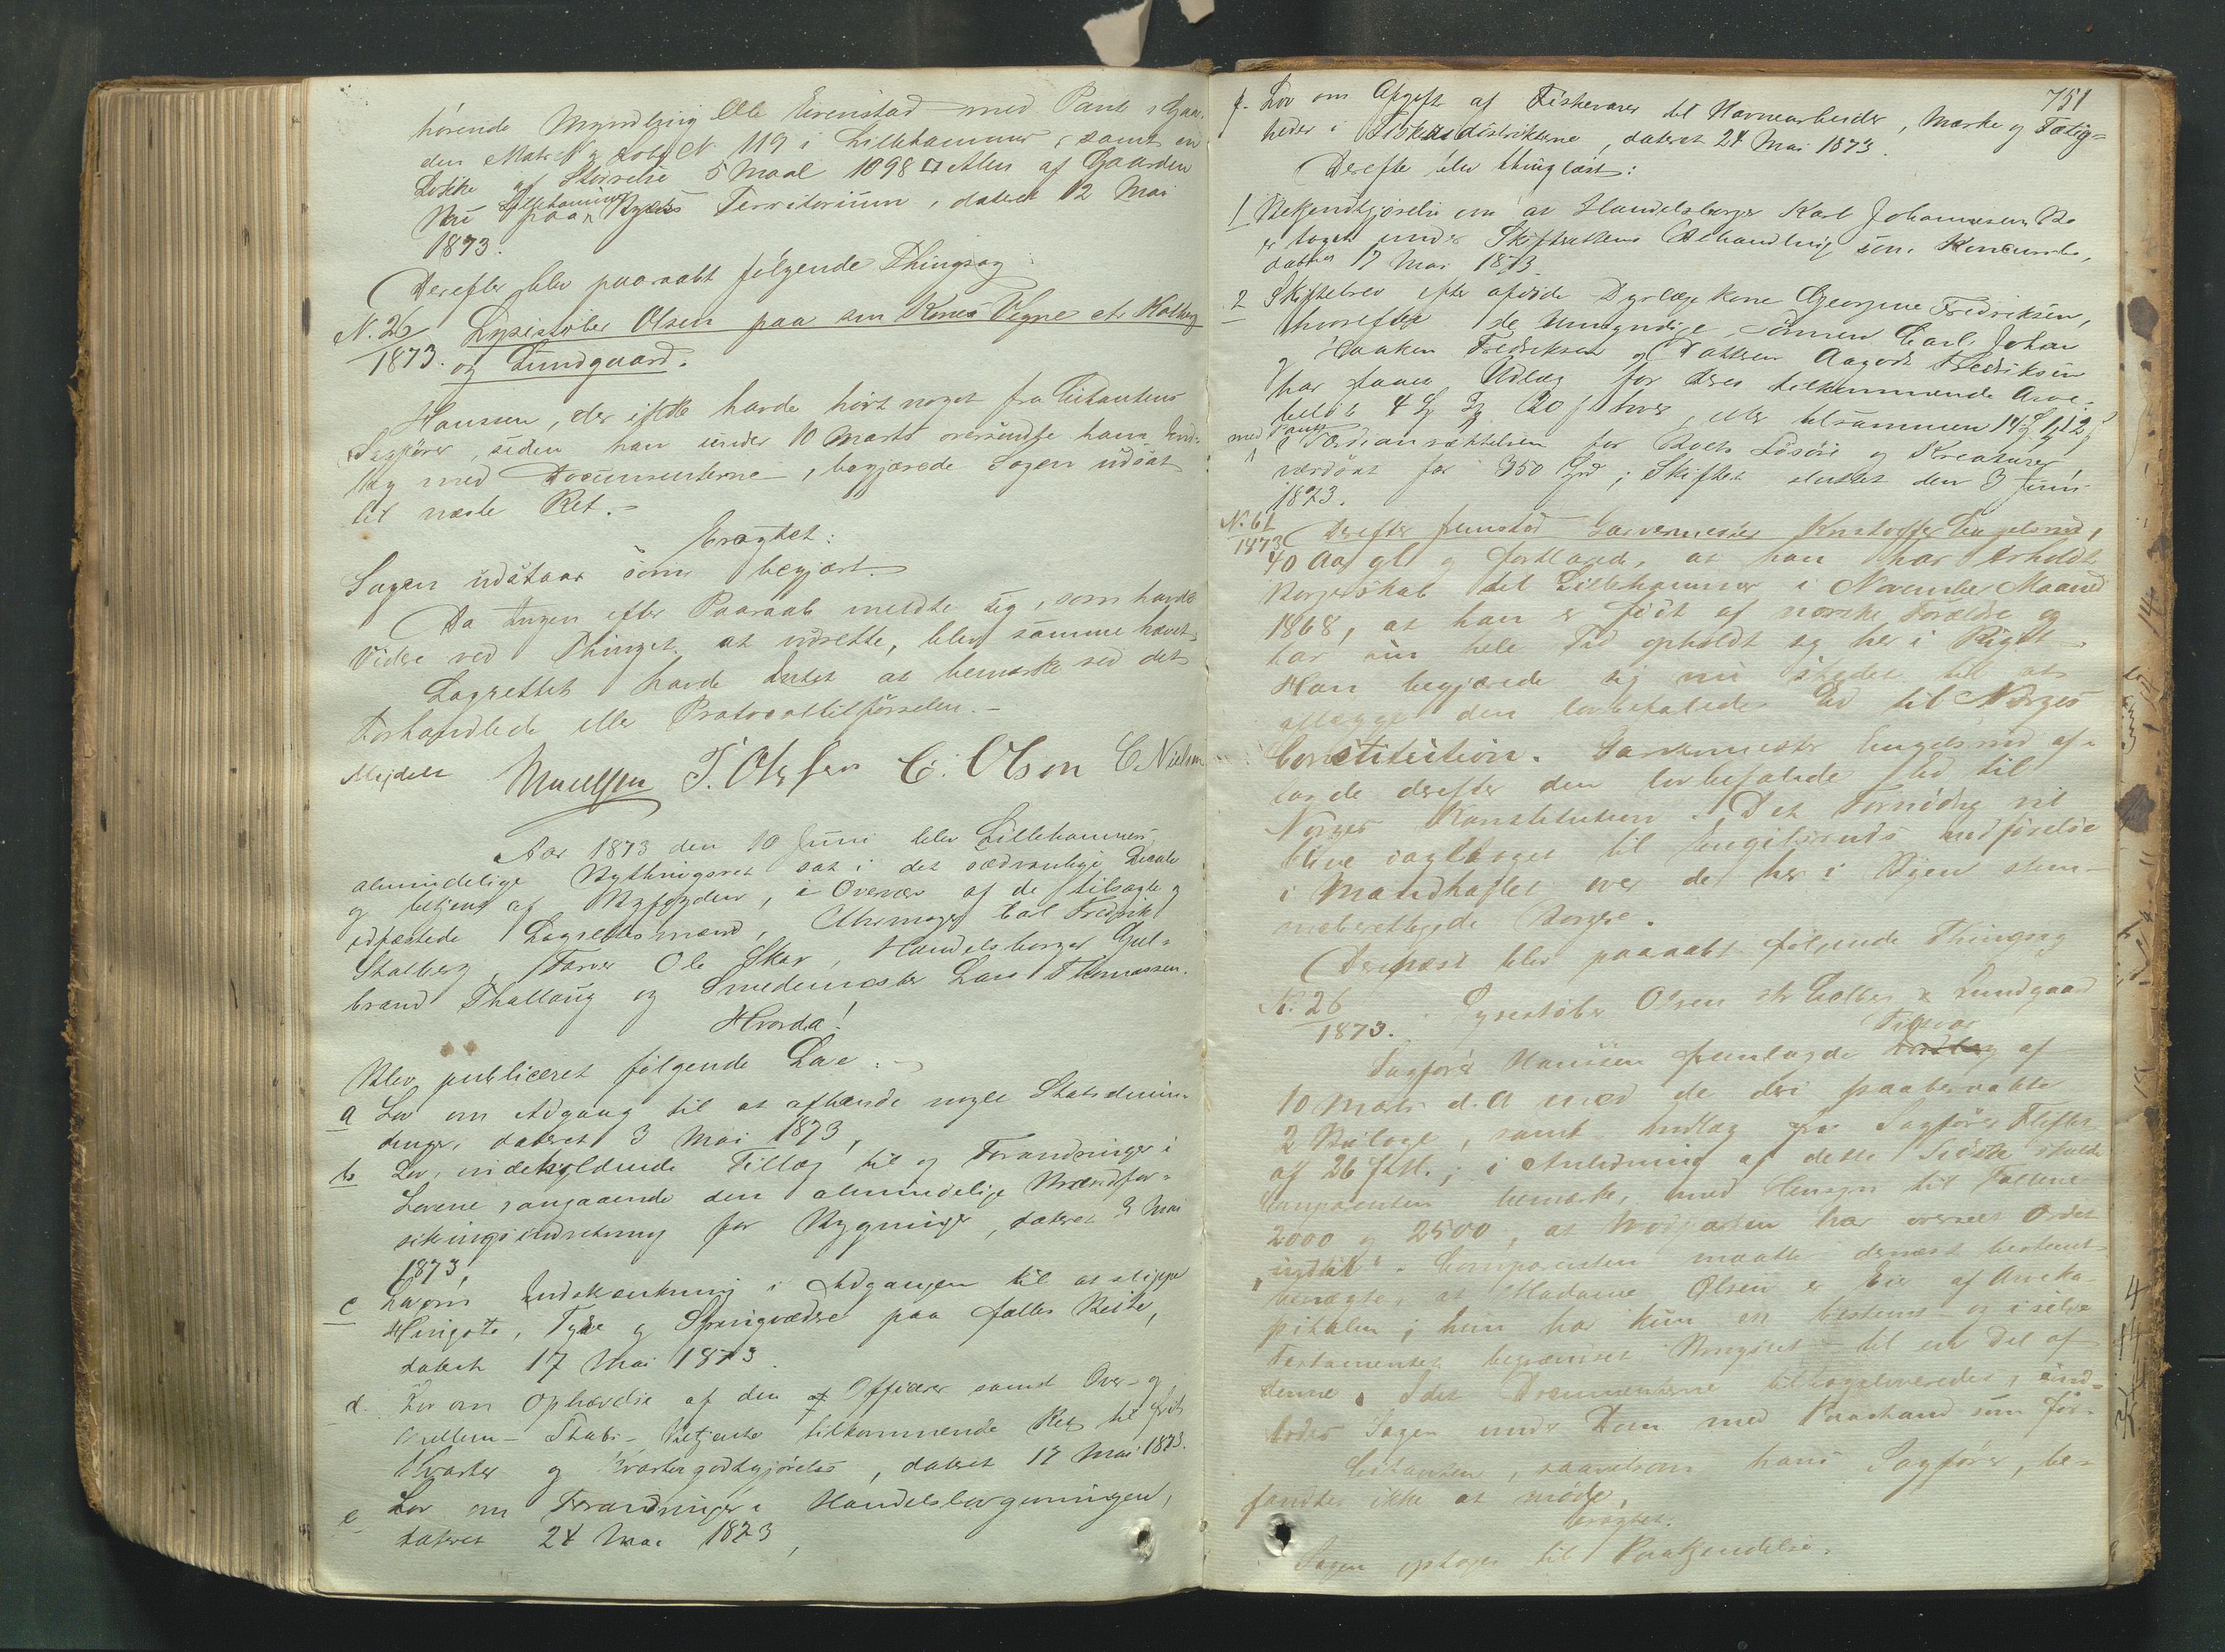 hørende Myndling Ole Evenstad med Pant i Gaar-
den Matr. N. og Lobe N. 119 i Lillehammer, samt en
Løkke af Størrelse 5 Maal 1098 □ Alen af Gaarden
paa Lillehammer Byes Territorium, dateret 12 Mai
1873.
Derefter blev paaraabt følgende Thingsag:
N. 26 Olsen paa sin Kones Vegne ctr Kolberg
1873. og Lundgaard.
Hansen, der ikke havde hørt noget fra Citantens
Sagfører, siden han under 10 Marts oversendte ham Ind-
læg med Documenterne, begjærede Sagen udsat
til næste Ret.-
Eragtet:
Sagen udstaar som begjært.
Da Ingen efter Paaraab meldte sig, som havde
Videre ved Thinget at udrette, blev samme hævet.
Lagrettet havde Intet at bemærke ved det
Forhandlede eller Protocoltilførselen.-
Mejdell T. Olsen C. Olsen C. Nielsen
Aar 1873 den 10 Juni blev Lillehammers
almindelige Bythingsret sat i det sædvanlige Locale
og betjent af Byfogden, i Overvær af de tilsagte og
edfæstede Lagrettesmænd, Uhrmager Carl Fredrik
Stalberg, Farver Ole Skar, Handelsborger Gul-
brand Thallaug og Smedemester Lars Thomassen.
Hvorda!
Blev publiceret følgende Love:
a Lov om Adgang til at afhænde nogle
dateret 3 Mai 1873,
b Lov, indeholdende Tillæg til og Forandringer i
Lovene angaaende den almindelige Brandfor-
sikringsindretning for Bygninger, dateret 3 Mai
1873,
c Lov om Indskrænkning i Adgangen til at slippe
Hingste, Tyre og Springvædre paa fælles Beite,
dateret 17 Mai 1873.
d. Lov om Ophævelse af den Officerer samt Over- og
Mellem-Stabs-Betjente tilkommende Ret til frit
Kvarter og Kvartergodtgjørelse, dateret 17 Mai 1873.
e Lov om Forandringer i Handelslovgivningen,
dateret 24 Mai 1873,
751
f. Lov om Afgift af Fiskevarer til Havnearbeider, Mærke og Fattig-
heder i Fiskedistrikterne, dateret 24 Mai 1873.
Derefter blev thinglæst:
1 Bekjendtgjørelse om at Handelsborger Karl Johannesens Bo
er taget under Skifterettens Behandling som Koncursbo,
dateret 17 Mai 1873.
2 Skiftebrev efter afdøde Dyrlæge Kone Georgine Fredriksen,
hvorefter de Umyndige, Sønnen Carl Johan
og Haaken Fredriksen og Datteren Aagodt Fredriksen
har faaet Udlæg for deres tilkommende Arve-
beløb 4 20 hver, eller tilsammen
med Pant i for Boets Løsøre og Kreaturer
værdsat for 350 Spd; Skiftet sluttet den 3 Juni
1873.
N. 61 Derefter fremstod Garvermester Kristoffer Engelsrud,
1873 40 Aar gl. og forklarede, at han har erholdt
Borgerskab til Lillehammer i November Maaned
1868, at han er født af norske Forældre og
har sin hele Tid opholdt sig her i Riget.-
Han begjærede sig nu stedet til at
aflægge den lovbefalede Ed til Norges
Constitution. Garvermester Engelsrud af-
lagde derefter den lovbefalede Ed til
Norges Konstitution. Det Fornødne vil
blive iagttaget til Engelsruds Indførelse
i Mandtallet over de her i Byen stem-
meberettigede Borgere.
Dernæst blev paaraabt følgende Thingsag
N. 26 Olsen ctr Colberg & Lundgaard
1873.
Sagfører Hansen fremlagde Tilsvar af
10 Marts d.A med de deri paaberaabte
2 Bilage, samt Indlæg fra Sagfører
af 26 f.M.; i Anledning af dette Sidste skulde
Comparenten bemærke, med Hensyn til Tallene
2000 og 2500, at Modparten har overseet Ordet
. Comparenten maatte dernæst bestemt
benægte, at Madame Olsen er Eier af Arveka-
pitalen; hun har kun en bestemt og i selve
Testamentet begrændset Brugsret til en Del af
denne. Idet Documenterne tilbageleveredes, ind-
lodes Sagen under Dom med Paastand som før.
Citanten, saavelsom hans Sagfører, be-
fandtes ikke at møde,
Eragtet:
Sagen optages til Paakjendelse.